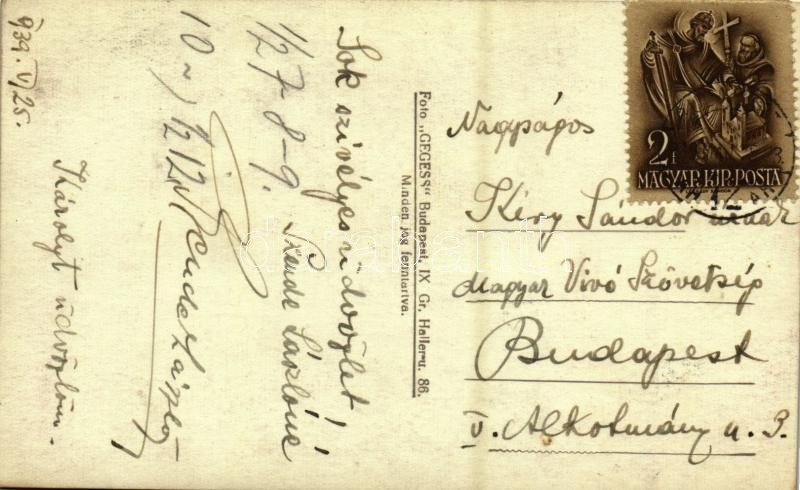 939. V/25.
Sok szivélyes üdvözlet!
1/27-8-9. Szende Lászlóné
10 ~) 1212 Szende László
Károlyt üdvözlöm.
Foto „GEGESS“ Budapest, IX Gr. Haller-u. 86.
Minden jog fenntartva.
2f
MAGYAR·KIR·POSTA
Nagyságos
Kéry Sándor urnak
Magyar Vivó Szövetség
Budapest
V. Alkotmány u. 3.